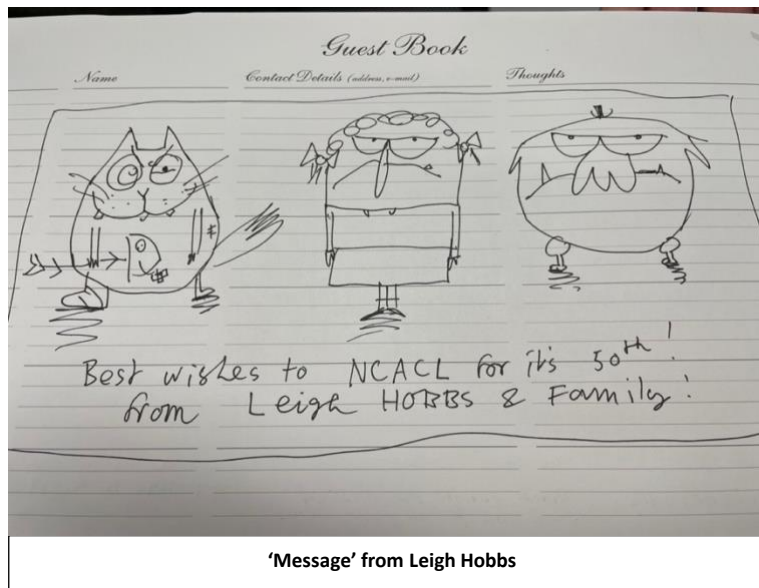 Guest Book
Name Contact Details (address, e-mail) Thoughts
Best wishes to NCACL for it's 50th!
from Leigh HOBBS & Family!
‘Message’ from Leigh Hobbs